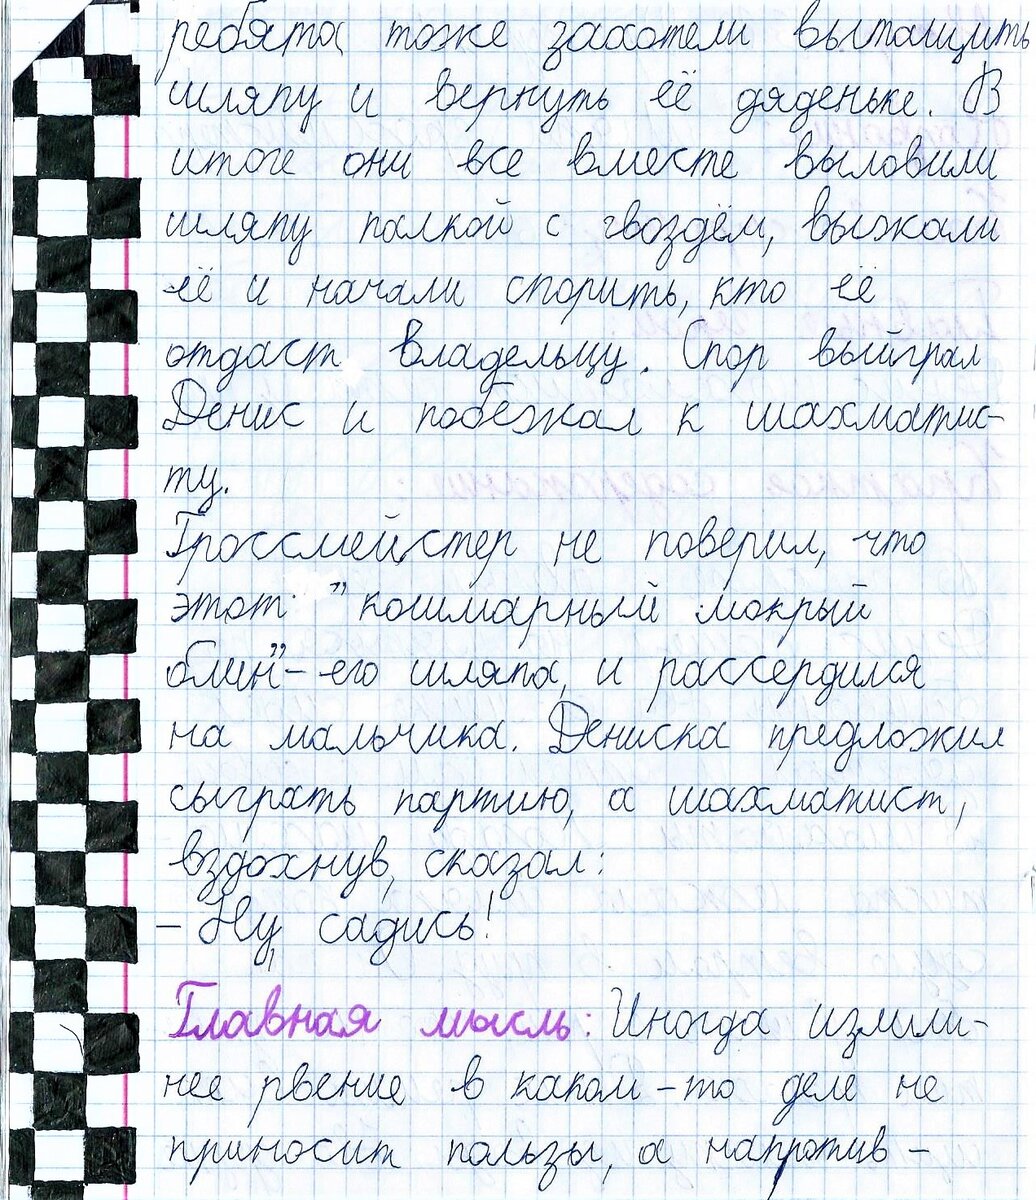 ребята тоже захотели вытащить
шляпу и вернуть её дяденьке. В
итоге они все вместе выловили
шляпу палкой с гвоздём, выжали
её и начали спорить, кто её
отдаст владельцу. Спор выйграл
Денис и побежал к шахматис-
ту.
Гроссмейстер не поверил, что
этот "кошмарный мокрый
блин" - его шляпа, и рассердился
на мальчика. Дениска предложил
сыграть партию, а шахматист,
вздохнув, сказал:
- Ну, садись!
Главная мысль: Иногда излиш-
нее рвение в каком-то деле не
приносит пользы, а напротив -